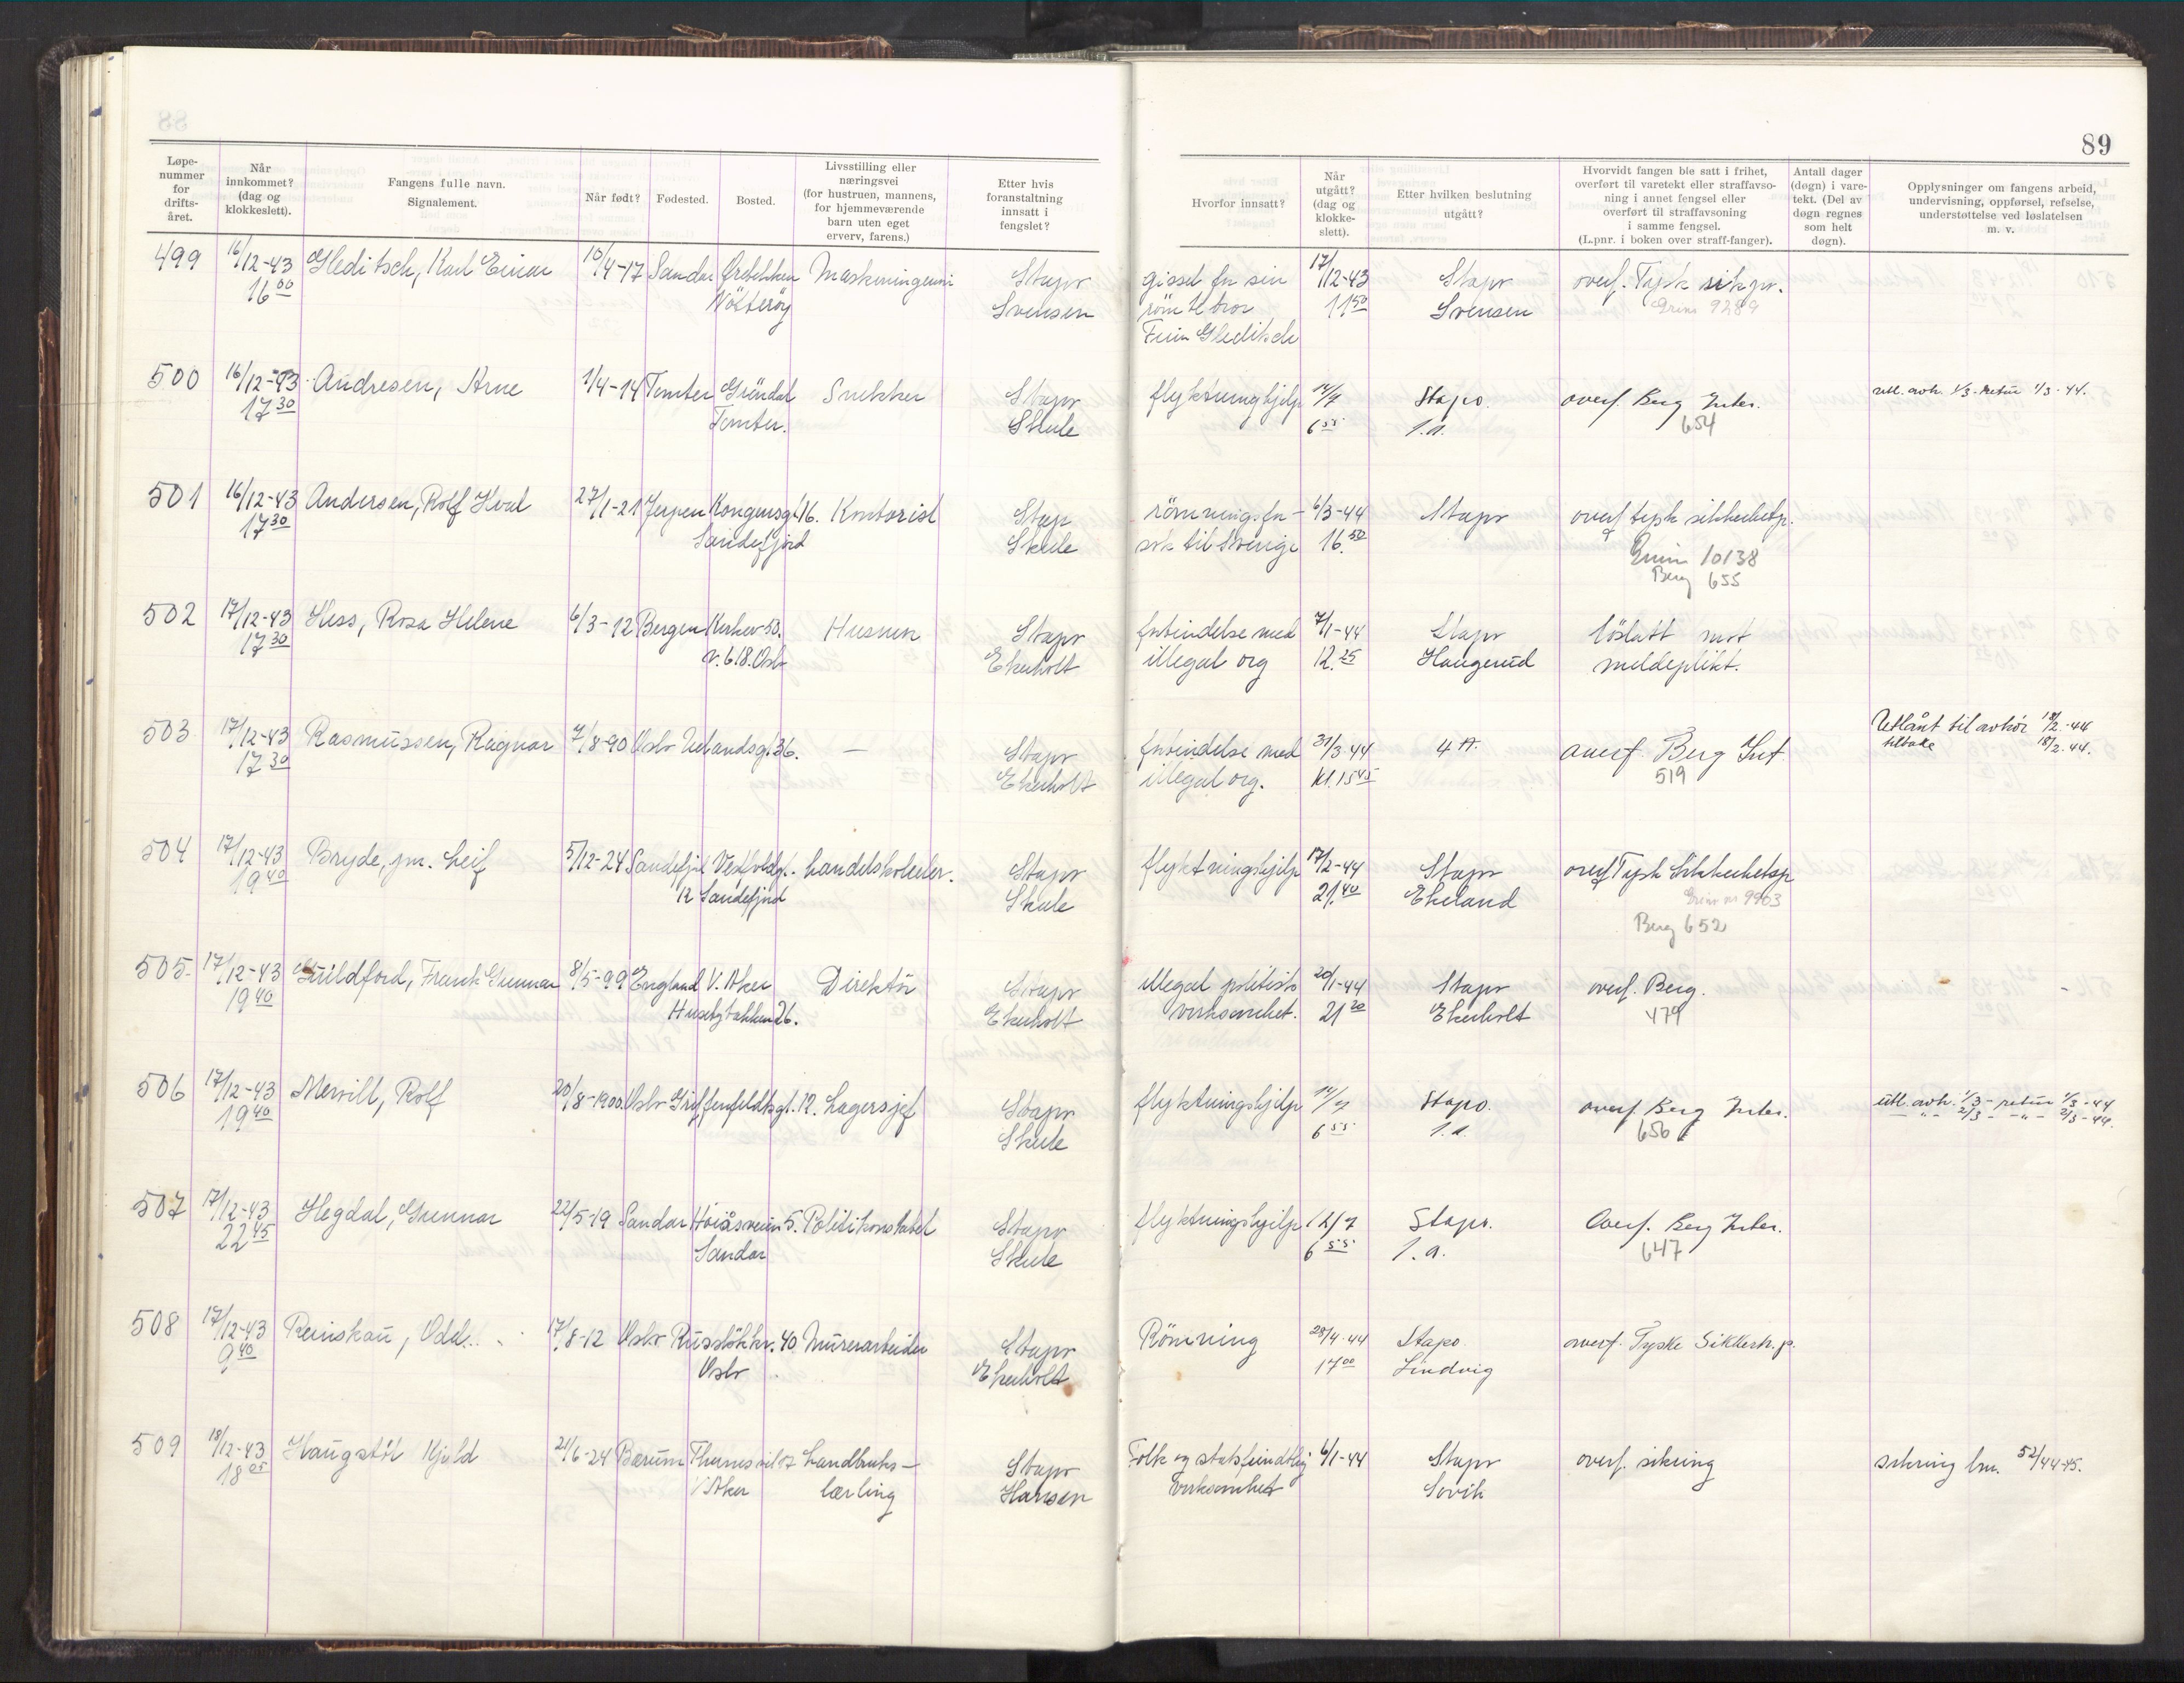 89
Løpe-
nummer
for
drifts-
året.
Når
innkommet?
(dag og
klokkeslett).
Fangens fulle navn.
Signalement.
Når født?
Fødested.
Bosted.
Livsstilling eller
næringsvei
(for hustruen, mannens,
for hjemmeværende
barn uten eget
erverv, farens.)
Etter hvis
foranstaltning
innsatt i
fengslet?
Hvorfor innsatt?
Når
utgått?
(dag og
klokke-
slett).
Etter hvilken beslutning
utgått?
Hvorvidt fangen ble satt i frihet,
overført til varetekt eller straffavso-
ning i annet fengsel eller
overført til straffavsoning
i samme fengsel.
(L.pnr. i boken over straff-fanger).
Antall dager
(døgn) i vare-
tekt. (Del av
døgn regnes
som helt
døgn).
Opplysninger om fangens arbeid,
undervisning, oppførsel, refselse,
understøttelse ved løslatelsen
m. v.
499 16/12-43 Gleditsch, Karl Einar 10/4-17 Sandar Ørebekken Maskiningeniør Stapo gissel for sin 17/12-43 Stapo overf. Tysk sik.po.
16 00 Nötteröy Svensen römte bror 11 50 Svensen Grini 9289
Finn Gleditsch
500 16/12-43 Andresen, Arne 1/4-14 Tomter Gröndal Snekker Stapo flyktninghjelp 14/4 Stapo. overf. Berg Inter. utl. avh. 1/3 - retur 1/3-44.
17 30 Tomter. Skule 6 55 1.a. 654
501 16/12-43 Andersen, Rolf Hval 27/1-21 Jerpen Kongensgt 16. Kontorist Stap römningsfor- 6/3-44 Stapo overf tysk sikkerhetsp.
17 30 Sandefjord Skule søk til Sverige 16. 50 Grini 10138
Berg 655
502 17/12-43 Hess, Rosa Helene 6/3-12 Bergen Kirkev 53. Husmor Stapo forbindelse med 7/1-44 Stapo löslatt mot
17 30 v. 618. Oslo Ekerholt illegal org 12. 25 Haugerud meldeplikt.
503 17/12-43 Rasmussen, Ragnar 7/8-90 Oslo Uelandsgt. 36. — Stapo forbindelse med 31/3 44 4 A. overf. Berg Int. Utlånt til avhör 18/2.-44
17 30 Ekerholt illegal org. Kl. 15 45 519 tilbake 18/2. 44.
504 17/12-43 Bryde, jnr. Leif 5/12-24 Sandefjord Vestfoldgt. handelskoleelev. Stapo flyktningshjelp 17/2-44 Stapo overf Tysk Sikkerhetsp
19 40 12 Sandefjord Skule 21. 40 Ekeland Grini nr 9903
Berg 652
505. 17/12-43 Guildford, Frank Gunnar 8/5-99 England V. Aker Direktör Stapo illegal politisk 20/1-44 Stapo overf. Berg. -
19 40 Husebybakken 26. Ekerholt virksomhet. 21 20 Ekerholt 479
506 17/12-43 Mervill, Rolf 20/8-1900 Oslo Griffenfeldtsgt. 12. Lagersjef Stapo flyktningshjelp 14/4 Stapo. overf. Berg Inter. utl. avh. 1/3 - retur 1/3-44
19 40 Skule 6 55 1.a. 656 — " — 2/3 - — " — 2/3-44.
507 17/12-43 Hegdal, Gunnar 22/5-19 Sandar Höiåsveien 5. Politikonstabel Stapo flyktningshjelp 12/7 Stapo. Overf. Berg Inter.
22 45 Sandar Skule 6 55 1.a. 647
508 17/12-43 Reinskau, Odd. 17/8-12 Oslo Russlökkv. 40 Murerarbeider Stapo Römning 28/4-44 Stapo. overf. Tyske Sikkerh.p.
9 40 Oslo Ekerholt 17 00 Lindvig
509 18/12-43 Haugstöl Kjeld 21/6-24 Bærum Landbruks- Stapo Folk og statsfiendtlig 6/1-44 Stapo overf. sikring sikring lnr. 52/44-45.
18 05 V. Aker lærling Hansen virksomhet Sovik